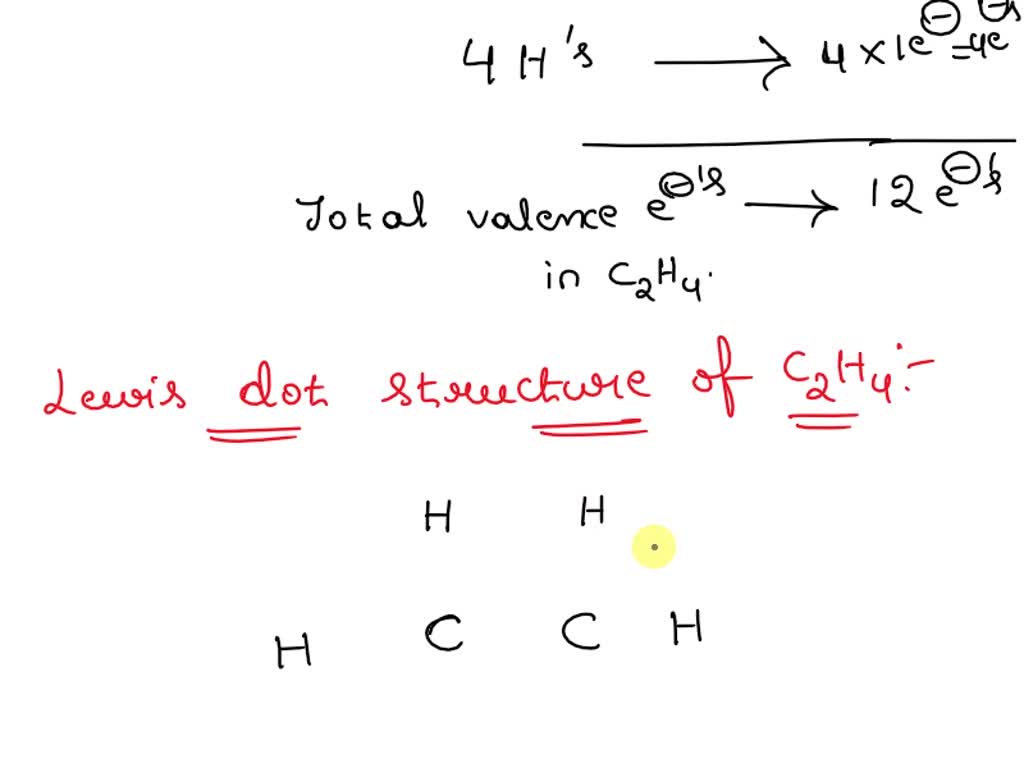 4 H's ⟶ 4 × 1e⊖ = 4e⊖'s
Total valence e⊖'s ⟶ 12 e⊖'s
in C₂H₄.
Lewis dot structure of C₂H₄:-
H H
H C C H